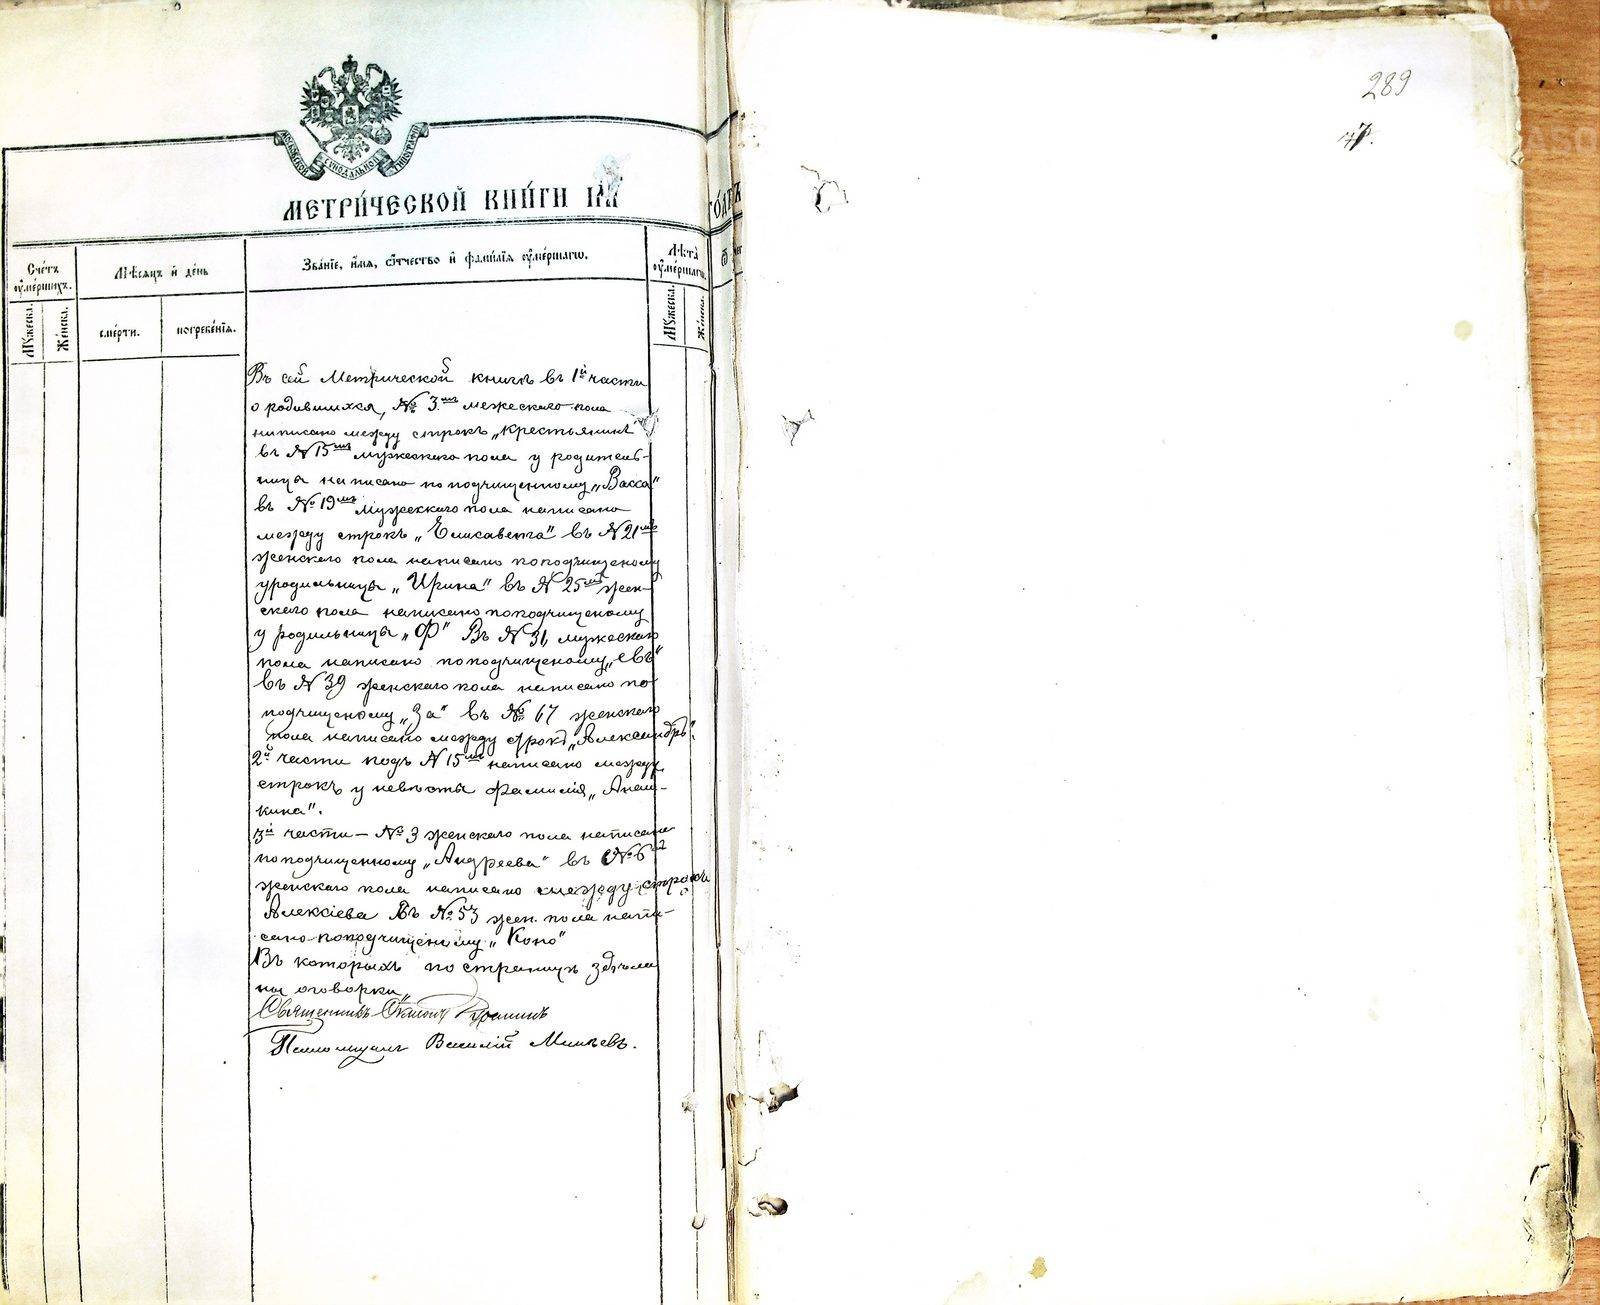 289
47.
МОСКОВСКОЙ СѴНОДАЛЬНОЙ ТИПОГРАФІИ
МЕТРИ́ЧЕСКОЙ КНИ́ГИ НА
ГО́ДЪ
Сче́тъ ѹме́ршихъ.
Мѣ́сяцъ и де́нь
Зва́нїе, и҆́мя, ѻ҆́тчество и҆ фами́лїя ѹ҆ме́ршагѡ.
Лѣ́та ѹ҆ме́ршагѡ.
Мꙋ́жеска.
Же́нска.
сме́рти.
погребе́нїя.
Мꙋ́жеска.
Же́нска.
Въ сей Метрической книгѣ въ 1й части
о родившихся, № 3мъ мужескаго пола
написано между строкъ „крестьянинъ"
въ № 15мъ мужескаго пола у родитель-
ницы написано поподчищенному „Васса"
въ № 19мъ мужескаго пола написано
между строкъ „Елисавета" въ № 21мъ
женскаго пола написано поподчищеному
у родильницы „Ирина" въ № 25мъ жен-
скаго пола написано поподчищеному
у родильницы „Ф" Въ № 31, мужескаго
пола написано поподчищеному „евъ"
въ № 39 женскаго пола написано по
подчищеному „За" въ № 67 женскаго
пола написано между строкъ „Александръ".
2й части подъ № 15мъ написано между
строкъ у невѣсты фамилія „
кина".
3й части – № 3 женскаго пола написано
поподчищенному „Андреева" въ № 6
женскаго пола написано между строкъ
Алексіева Въ № 53 жен. пола напи-
сано поподчищеному „Коно"
Въ которыхъ по страницѣ здѣла
ны оговорки
Священникъ
Псаломщикъ Василій